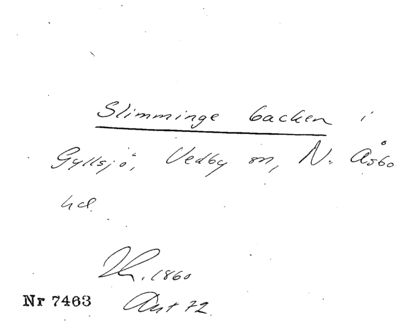 Slimminge backen i
Gyllsjö, Vedby sn, N. Åsbo
hd.
1860
Nr 7463 Ant 72